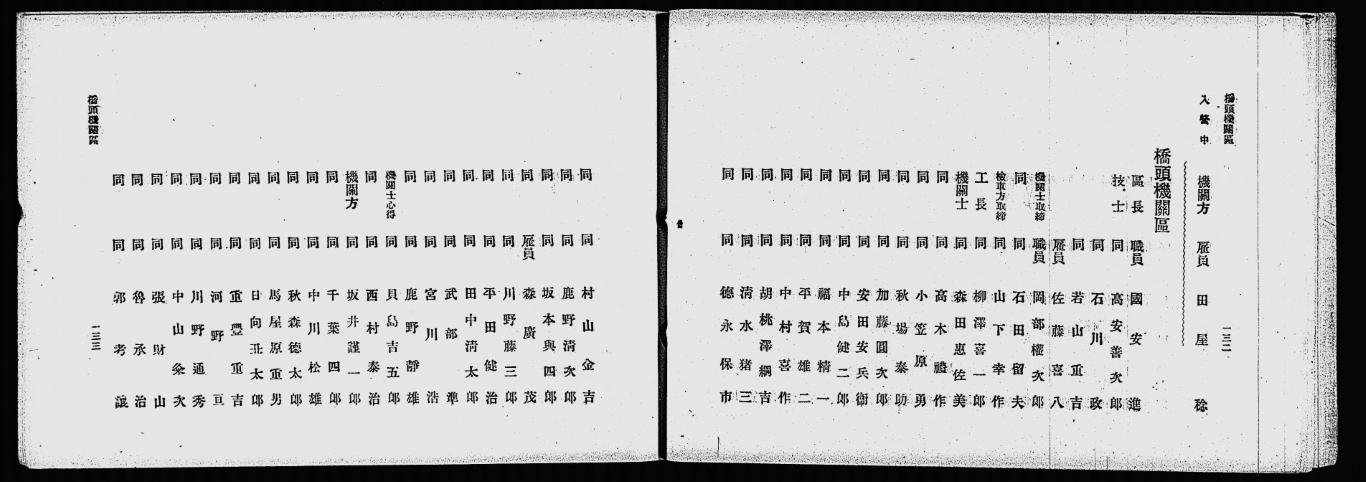 橋頭機關區
入營中 機關方 雇員 田屋稔
橋頭機關區
區長 職員 國安進
技士 同 高安善次郎
同 石川政
同 若山重吉
雇員 佐藤喜八
機關士取締 職員 岡部權次郎
同 同 石田留夫
檢車方取締 同 山下幸作
工長 同 柳澤喜一郎
機關士 同 森田惠佐美
同 同 高木禮作
同 同 小笠原勇
同 同 秋場泰助
同 同 加藤圓次郎
同 同 安田安兵衞
同 同 中島健二郎
同 同 福本精一
同 同 平賀雄二
同 同 中村喜作
同 同 胡桃澤綱吉
同 同 清水猪三
同 同 德永保市
一三二
同 同 村山金吉
同 同 鹿野清次郎
同 同 坂本與四郎
同 雇員 森廣茂
同 同 川野藤三郎
同 同 平田健治
同 同 田中清太郎
同 同 武部準
同 同 宮川浩
同 同 鹿野靜雄
機關士心得 同 貝島吉五郎
同 同 西村泰治
機關方 同 坂井謹一郎
同 同 千葉四郎
同 同 中川松雄
同 同 秋森德太郎
同 同 馬屋原重男
同 同 日向丑太郎
同 同 重豐重吉
同 同 河野亘
同 同 川野通秀
同 同 中山粂次
同 同 張財山
同 同 魯承治
同 同 郭考讓
橋頭機關區
一三三